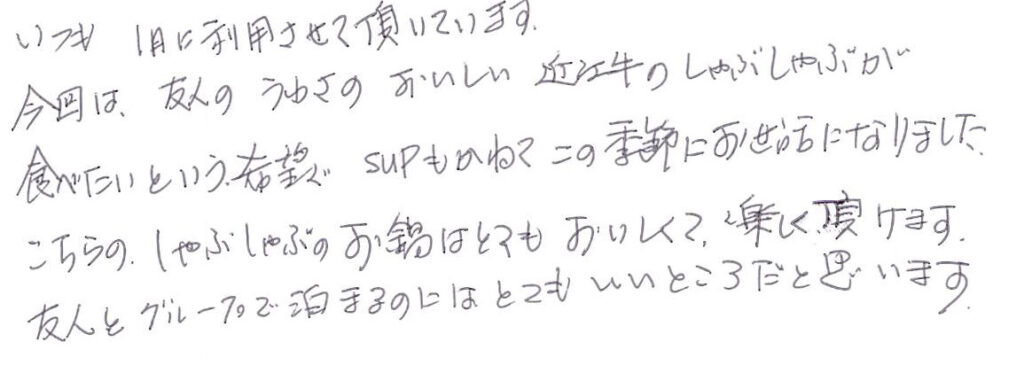 いつも 1月に利用させて頂いています.
今回は、友人の うわさの おいしい 近江牛の しゃぶしゃぶが
食べたいという.希望で SUPもかねて この季節にお世話になりました.
こちらの.しゃぶしゃぶの お鍋はとても おいしくて, 楽しく頂けます.
友人と グループで泊まるのには とても いいところだと思います.